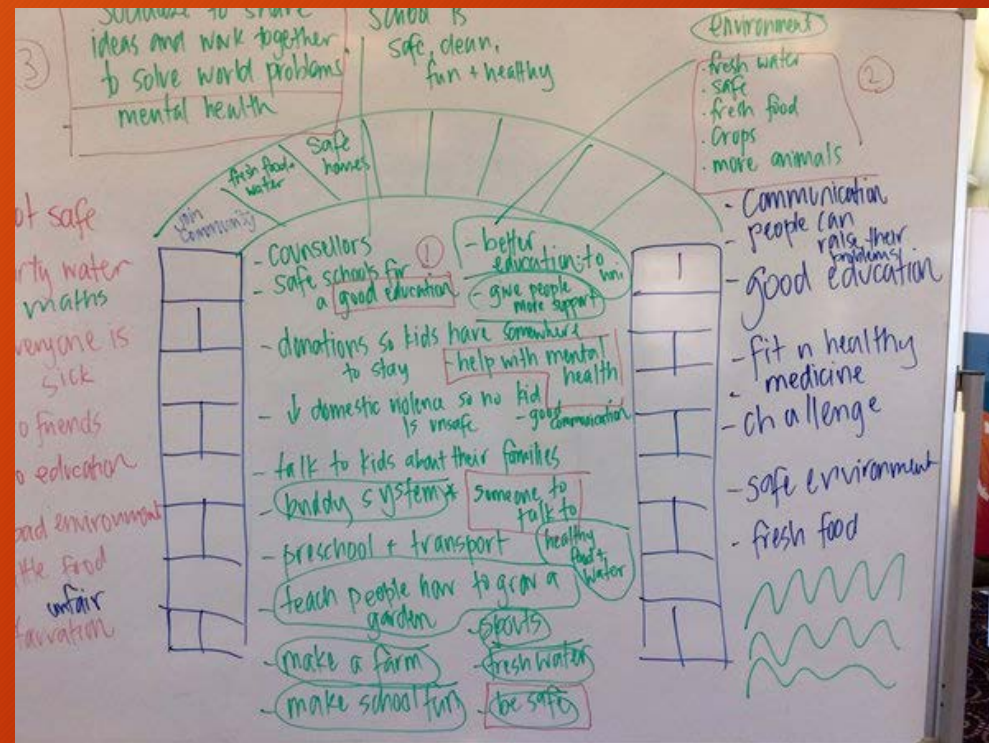 socialise to share
ideas and work together
to solve world problems
mental health
3
School is
safe, clean,
fun + healthy
environment
· fresh water
· safe
· fresh food
· Crops
· more animals
2
join
community
fresh food +
water
Safe
homes
ot safe
rty water
maths
veryone is
sick
o friends
o education
bad environment
ttle food
unfair
tarvation
- counsellors
- safe schools for
a good education
1
- better
education to
- give people
more support
- donations so kids have somewhere
to stay
- help with mental
health
- ↓ domestic violence so no kid
is unsafe
- good
communication
- talk to kids about their families
- buddy system*
someone to
talk to
- preschool + transport
healthy
food +
water
- teach people how to grow a
garden
- sports
- make a farm
- fresh water
- make school fun
- be safe
- Communication
- people can
raise their
problems
- good education
- fit n healthy
- medicine
- challenge
- safe environment
- fresh food